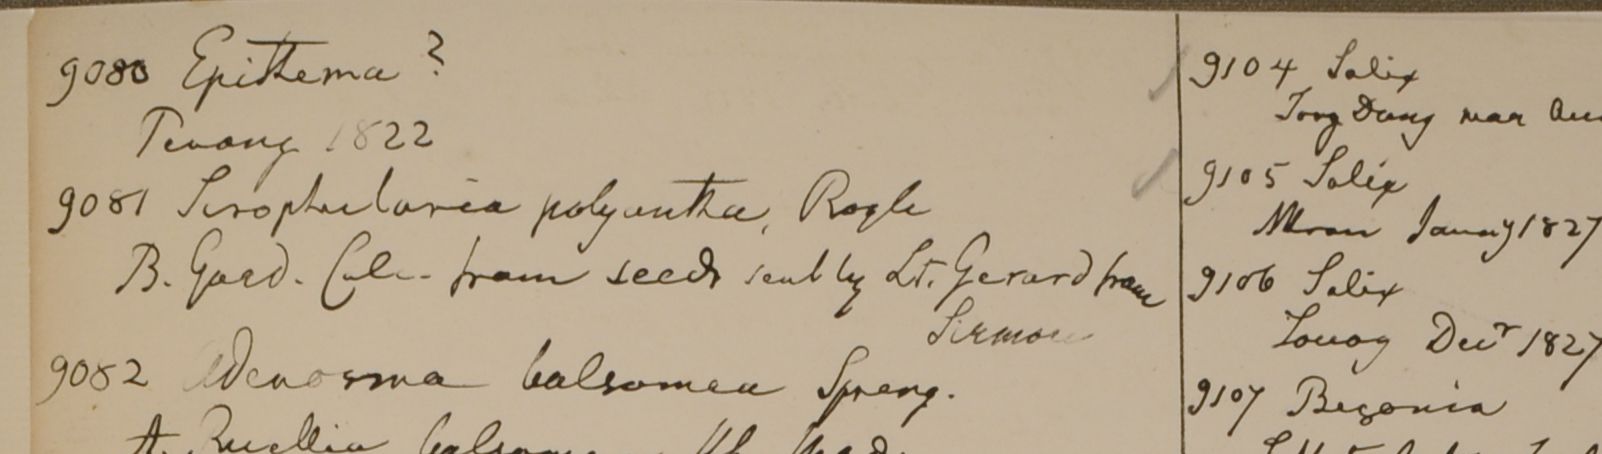 9080 Epithema ?
Penang 1822
9081 Scrophularia polyantha, Royle
B. Gard. Calc. from seeds sent by Lt. Gerard from
Sirmore
9082 Adenosma balsamea Spreng.
A. Ruellia balsamea
9104 Salix
Tong Dong
9105 Salix
1827
9106 Salix
Decr 1827
9107 Begonia